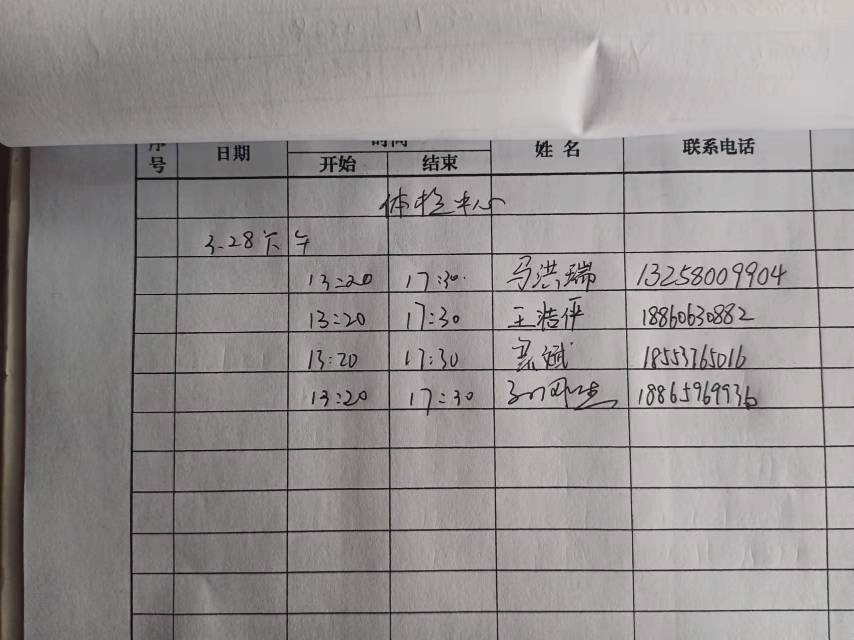 序号 日期 时间 姓 名 联系电话
开始 结束
体检中心
3.28下午
13:20 17:30 马洪瑞 13258009904
13:20 17:30 王浩伊 18860630882
13:20 17:30 斌 18553765016
13:20 17:30 18865969936